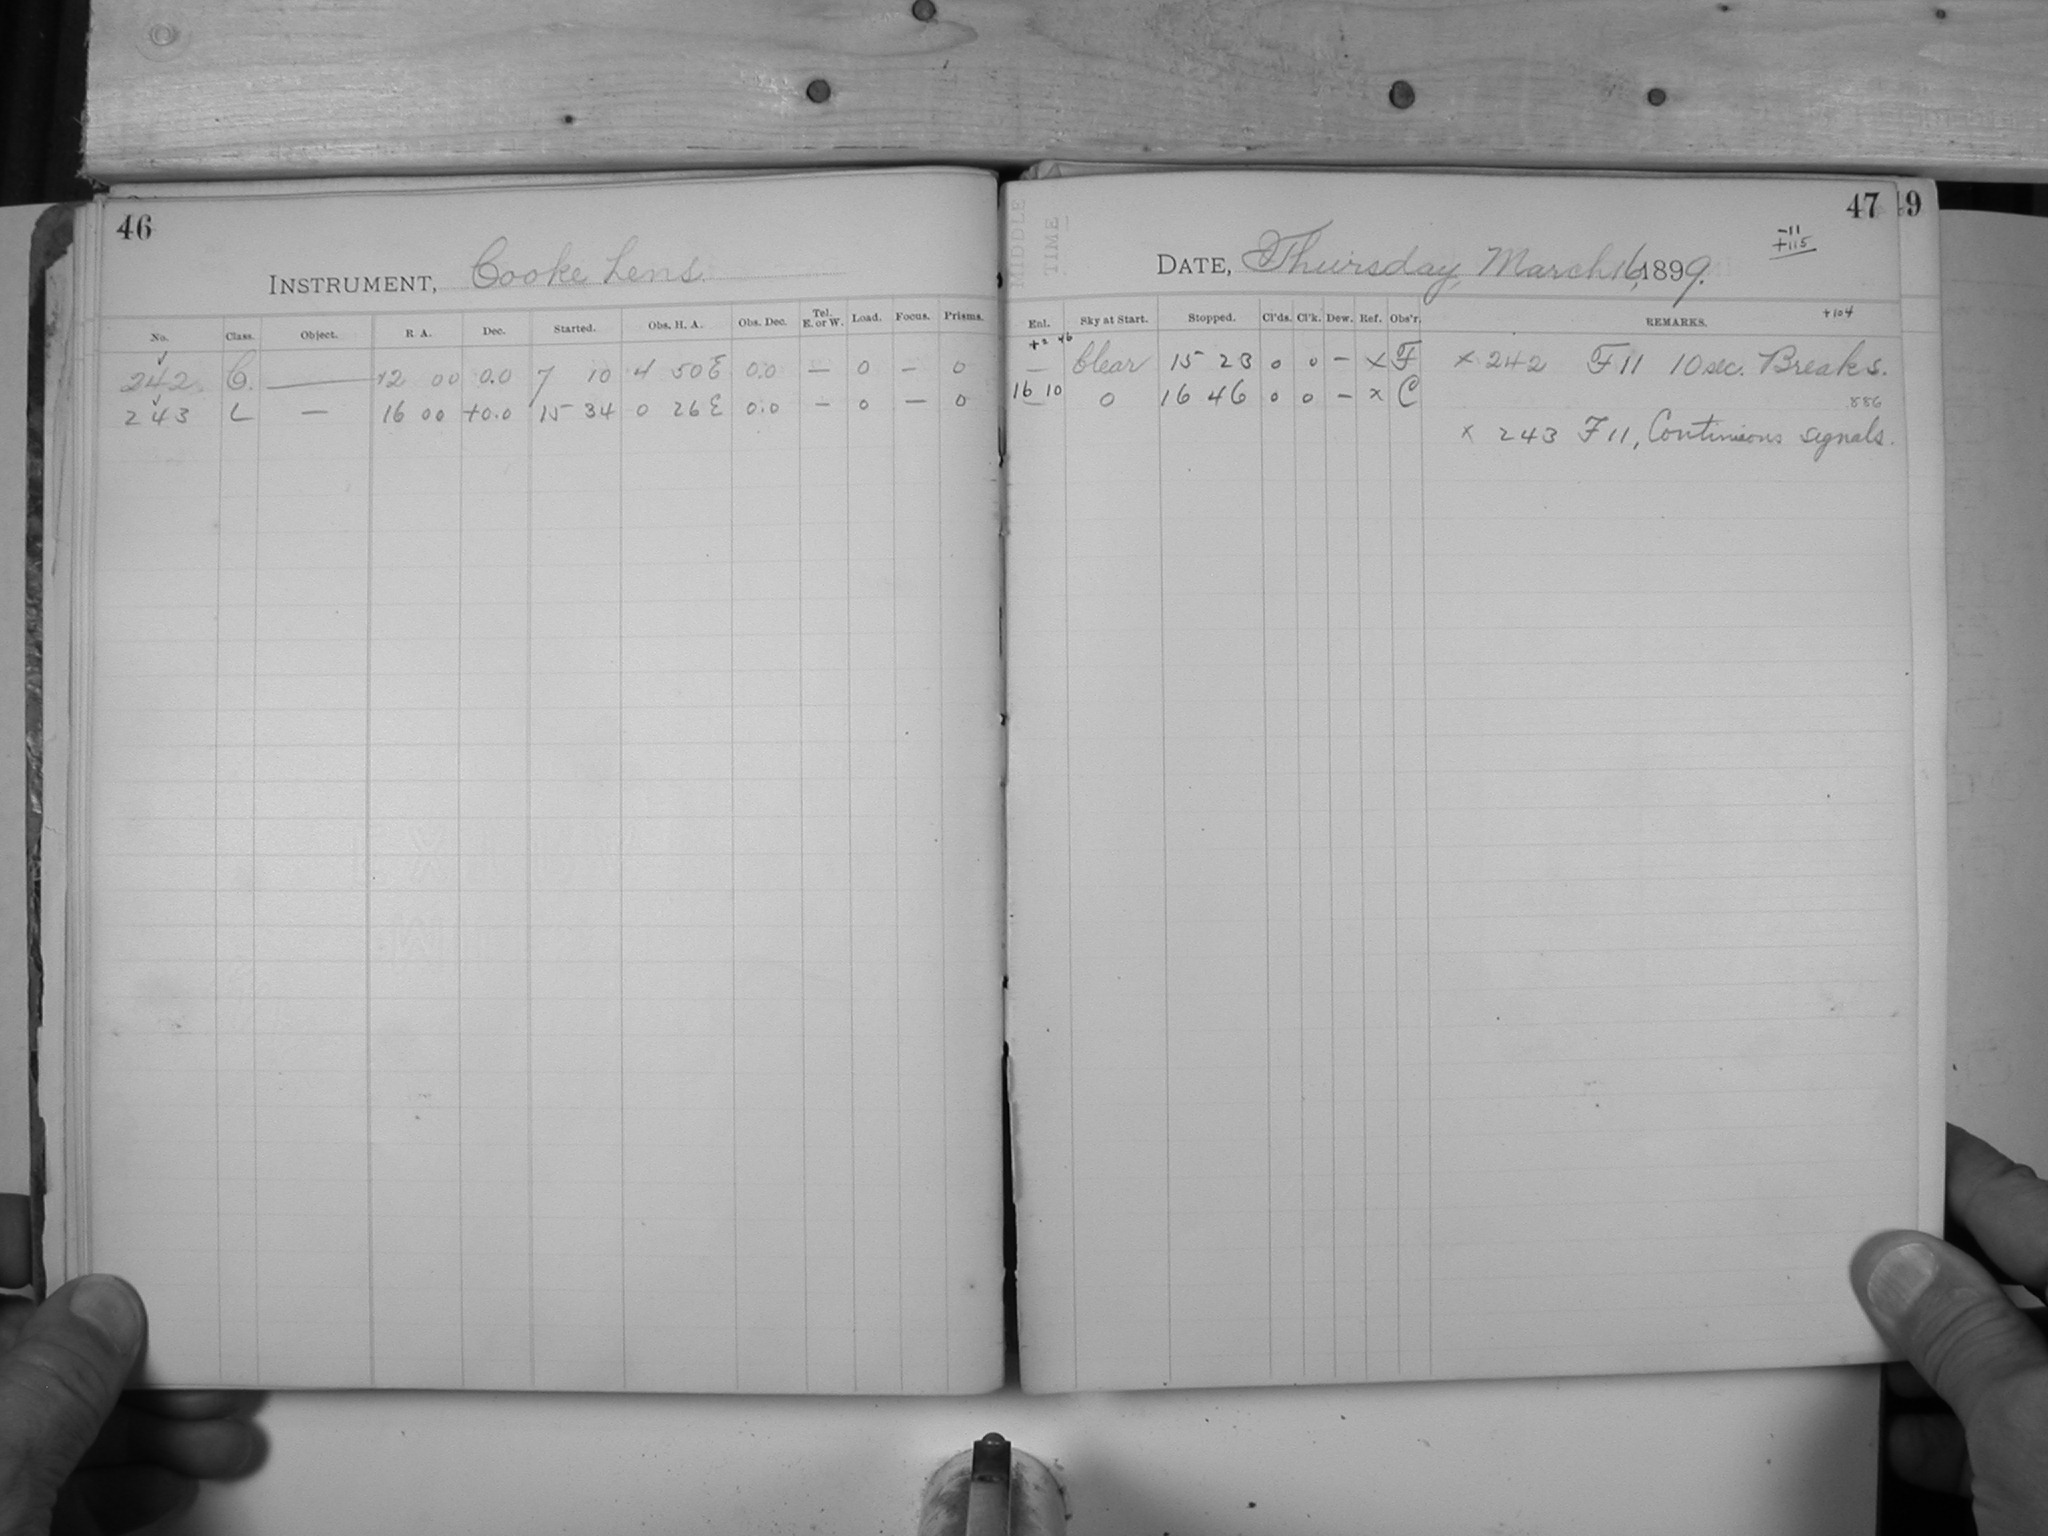 46
INSTRUMENT, Cooke Lens.
No. Class. Object. R. A. Dec. Started. Obs. H. A. Obs. Dec. Tel. E. or W. Load. Focus. Prisms.
242 C. — 12 00 0.0 7 10 4 50 E 0.0 — 0 — 0
243 L — 16 00 +0.0 15 34 0 26 E 0.0 — 0 — 0
47 49
MIDDLE
TIME
-11
+115
DATE, Thursday, March 16, 1899.
+104
Enl. Sky at Start. Stopped. Cl'ds. Cl'k. Dew. Ref. Obs'r. REMARKS.
— Clear 15 23 0 0 — x F x 242 F 11 10 sec. Breaks.
16 10 — 0 16 46 0 0 — x C
886
x 243 F 11, Continuous signals.